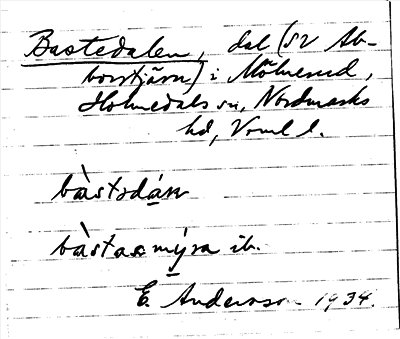 Bastedalen, dal (SV Ab-
borrtjärn) i Mölnerud,
Holmedals sn, Nordmarks
hd, Vrml l.
bàstədán
bàstaxmýra ib.
E. Andersson 1934.